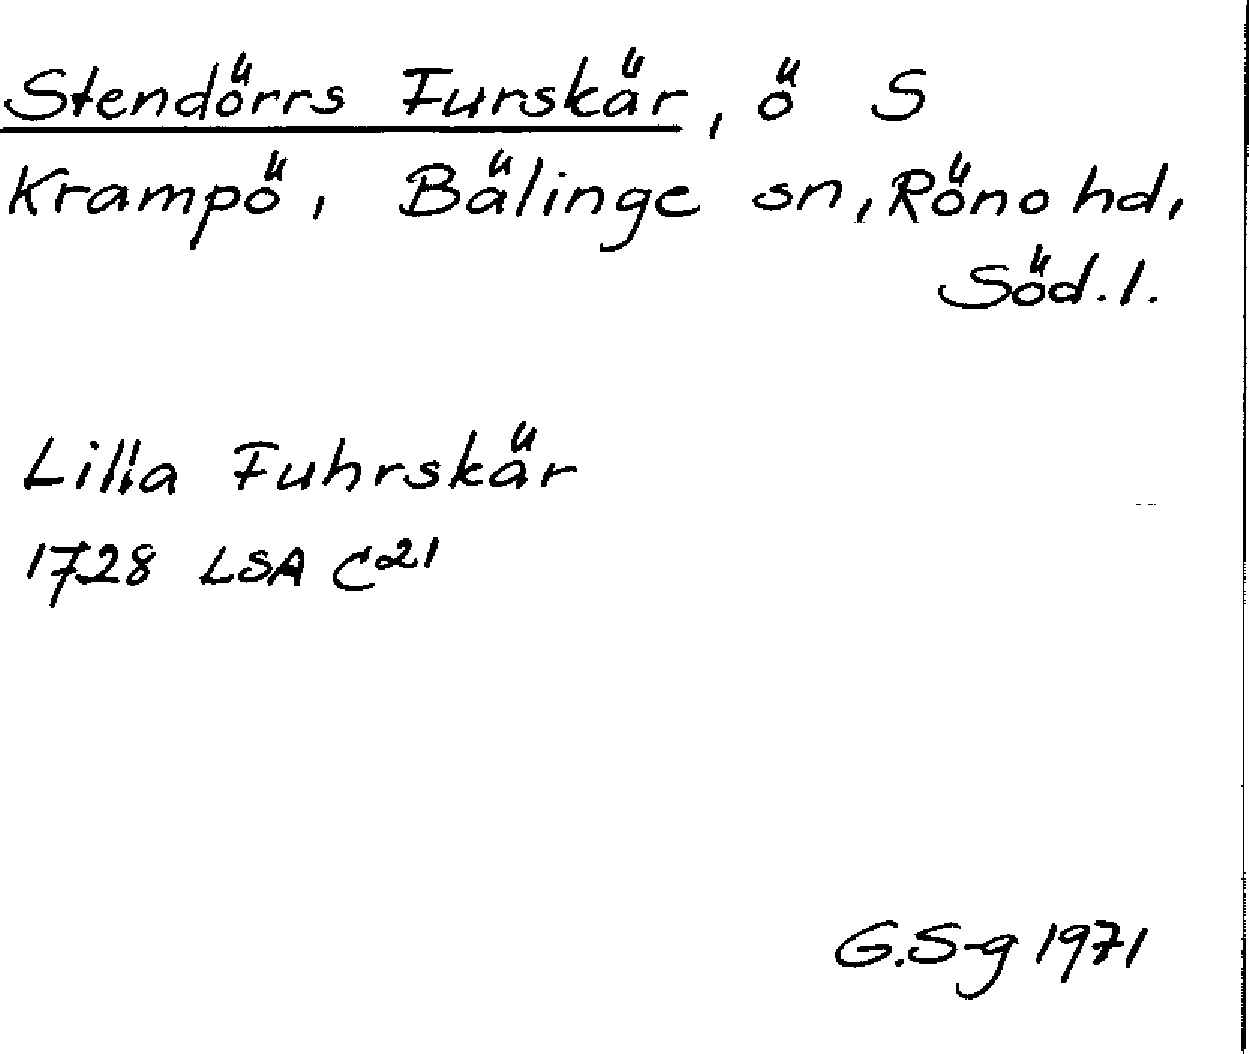 Stendörrs Furskär, ö S
Krampö, Bälinge sn, Röno hd,
Söd. l.
Lilla Fuhrskär
1728 LSA C21
G.S-g 1971